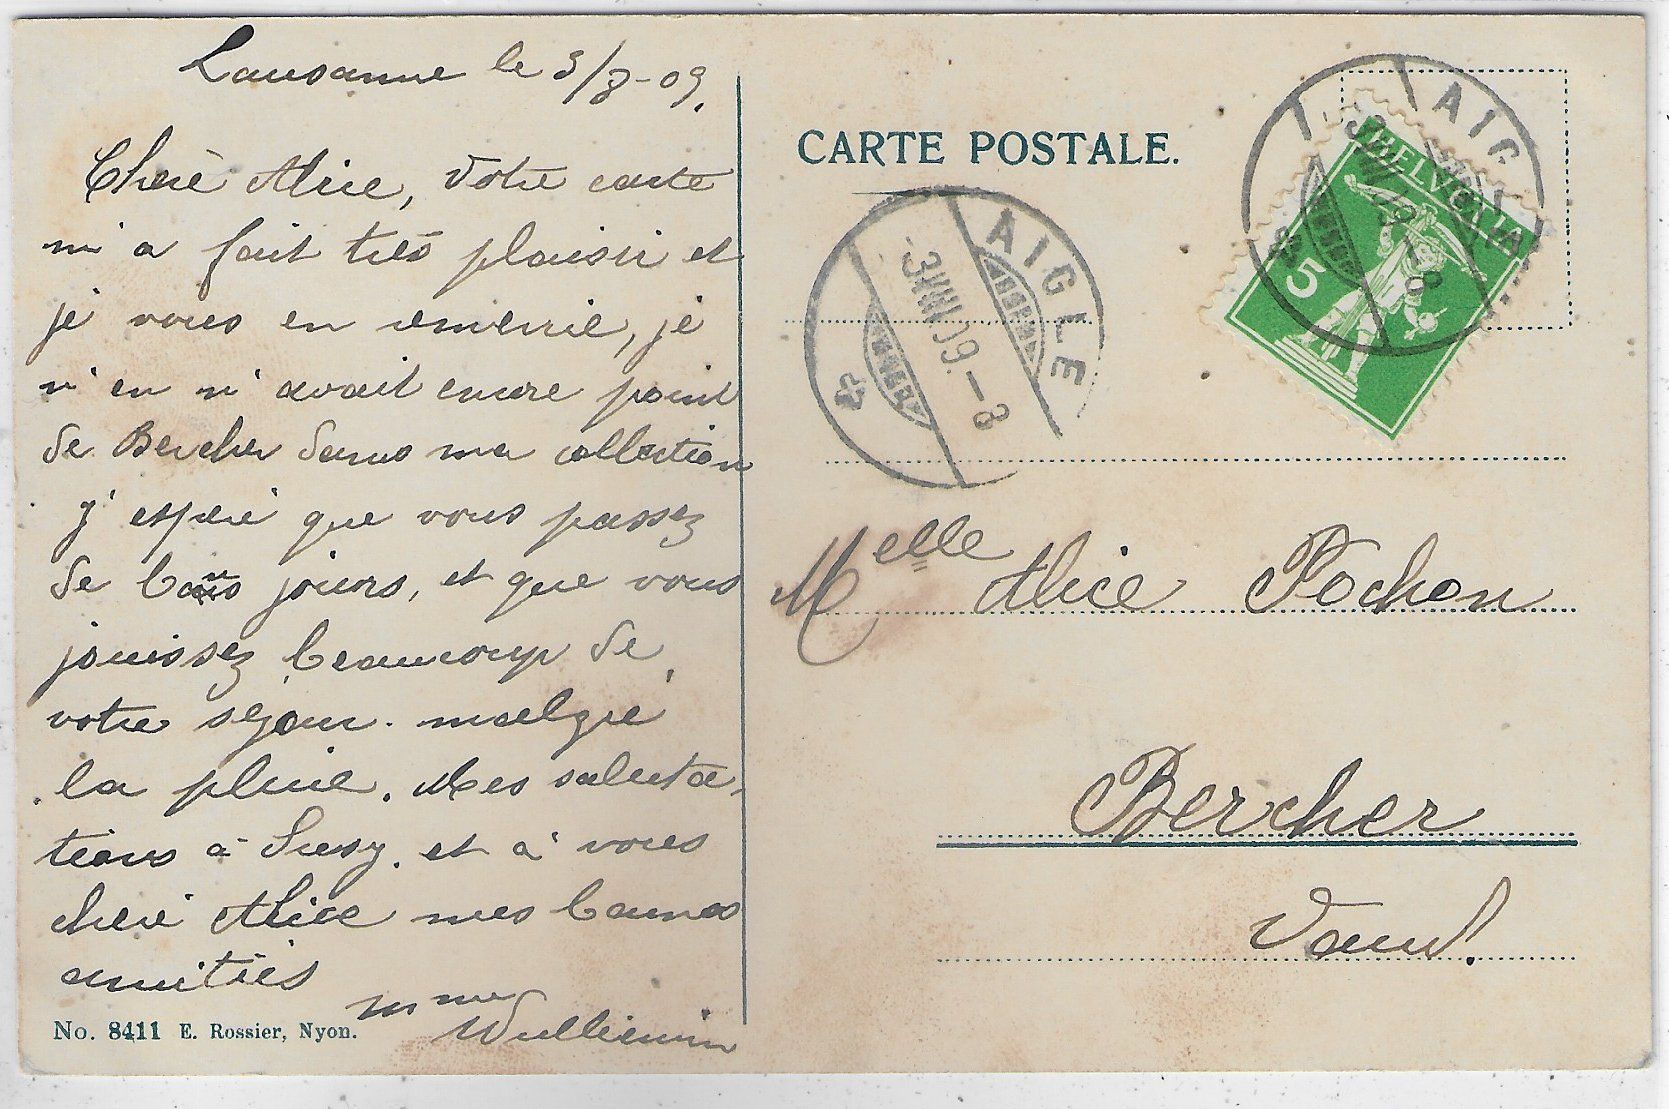 Lausanne le 3/8-09.
Chère Alice, Votre carte
m'a fait très plaisir et
je vous en remercie, je
n'en n'avait encore point
de Bercher dans ma collection
J'espère que vous passez
de bons jours, et que vous
jouissez beaucoup de
votre séjour. malgré
la pluie. Mes saluta-
tions à Susy. et à vous
chère Alice mes bonnes
amitiés
Mme
Wulliemin
No. 8411 E. Rossier, Nyon.
CARTE POSTALE.
AIGLE
-3 VIII 09. - 8
AIG
-3 VIII 09 - 8
HELVETIA
5
Melle Alice Pochon
Bercher
Vaud.